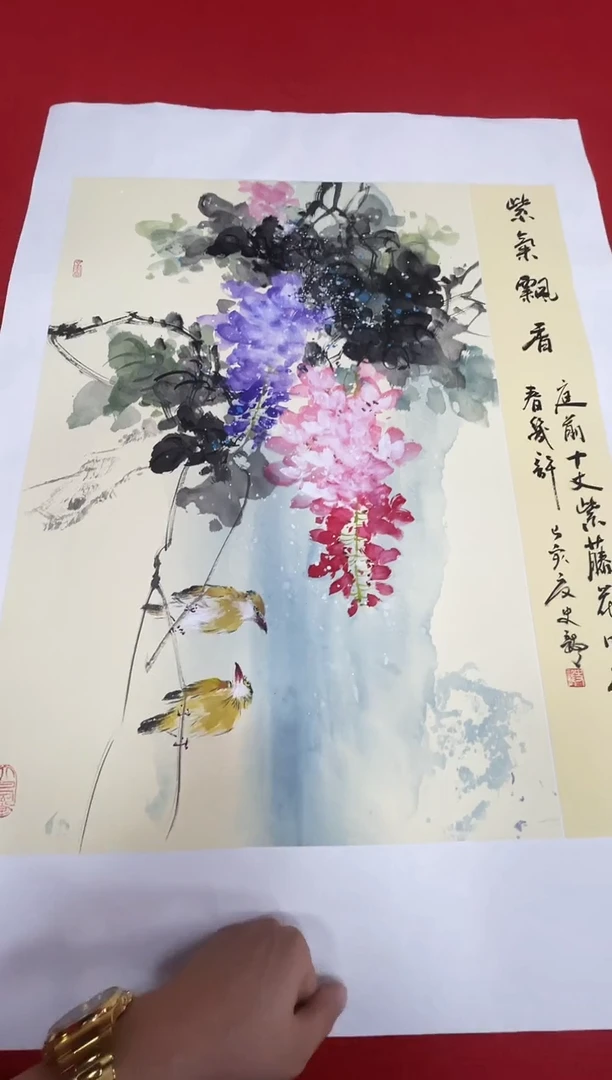 紫氣飄香
庭前十丈紫藤花
春幾許 己亥夏史